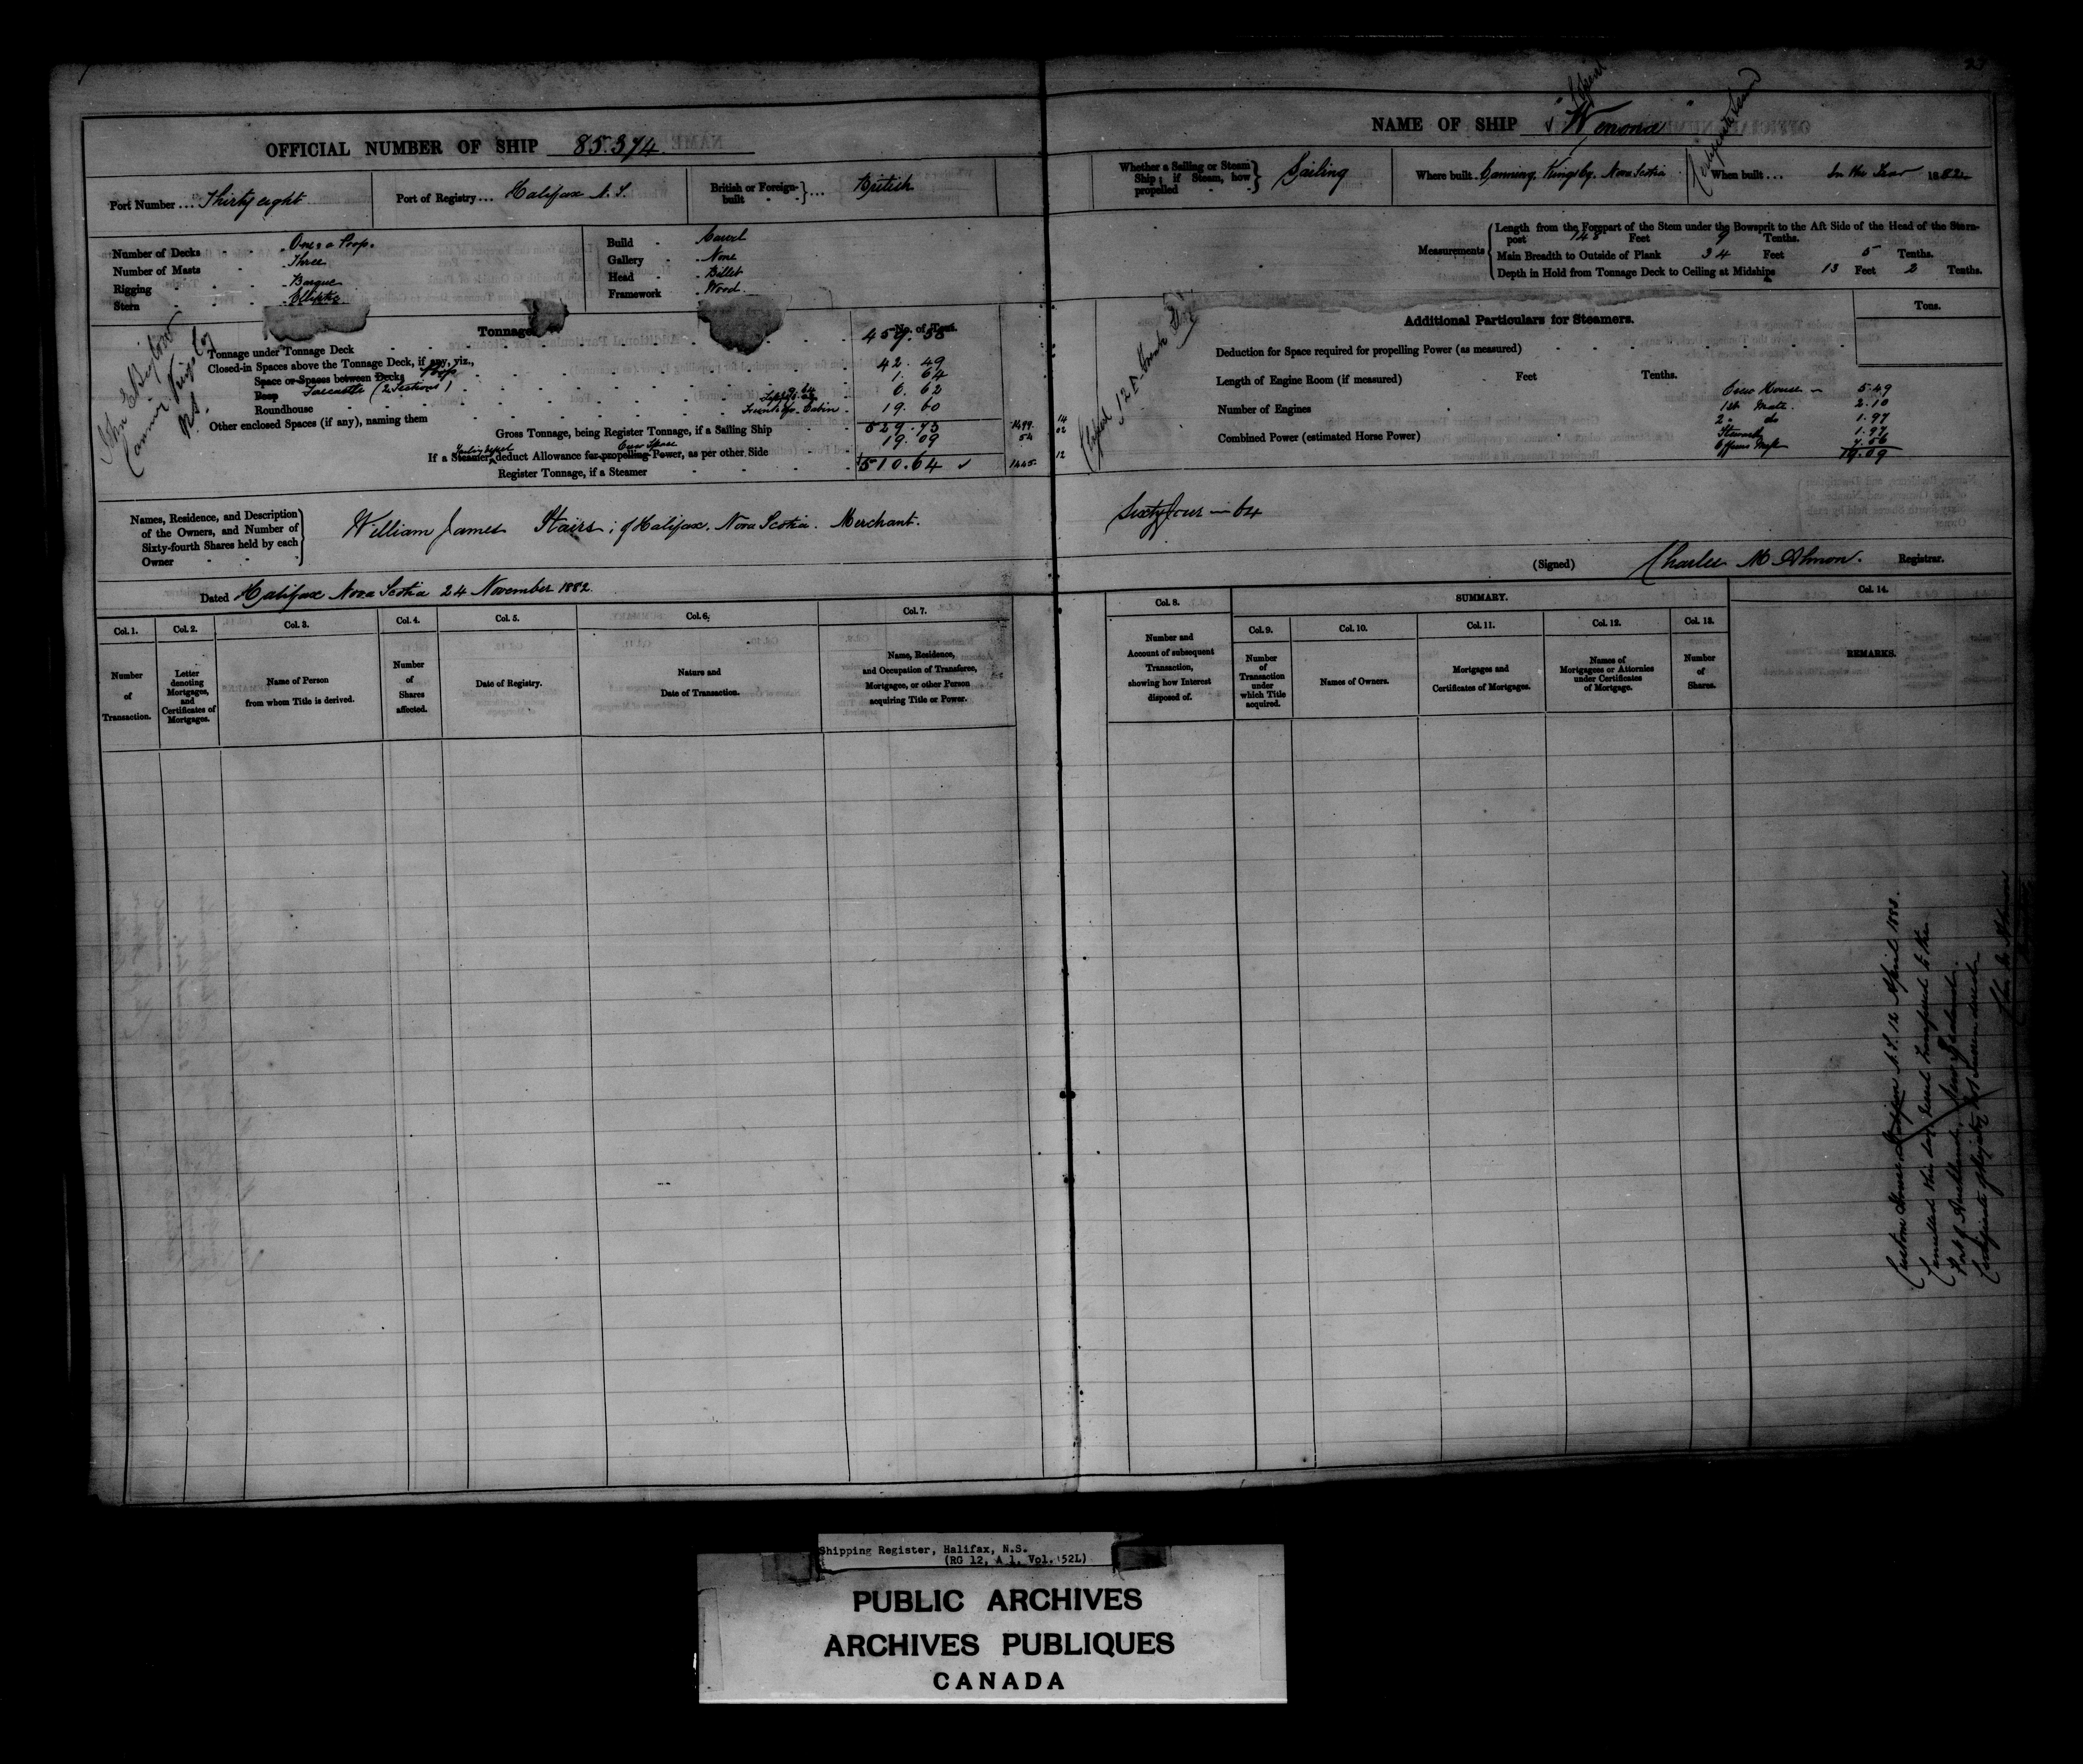 23
OFFICIAL NUMBER OF SHIP 85.374
NAME OF SHIP "Wenona"
Port Number ... Thirty eight
Port of Registry ... Halifax N.S.
British or Foreign-built ... British
Whether a Sailing or Steam Ship; if Steam, how propelled Sailing
Where built Canning, Kings Cy. Nova Scotia
When built ... In the Year 1882
Number of Decks One & a Poop.
Number of Masts Three
Rigging Barque
Stern Elliptic
Build Carvel
Gallery None
Head Billet
Framework Wood.
Measurements
Length from the Forepart of the Stem under the Bowsprit to the Aft Side of the Head of the Stern-post 148 Feet 9 Tenths.
Main Breadth to Outside of Plank 34 Feet 5 Tenths.
Depth in Hold from Tonnage Deck to Ceiling at Midships 13 Feet 2 Tenths.
John E Bigelow
Canning Kings Co
N.S.
Tonnage
No. of Tons.
Tonnage under Tonnage Deck 459.58
Closed-in Spaces above the Tonnage Deck, if any, viz.,
Space or Spaces between Decks Poop 42.49
Poop Forecastle (2 Sections) 1.64
Roundhouse 6.62
Other enclosed Spaces (if any), naming them 19.60
Gross Tonnage, being Register Tonnage, if a Sailing Ship 529.73
If a Steamer, Sailing Vessel deduct Allowance for propelling Power, Crew Space as per other Side 19.09
Register Tonnage, if a Steamer 510.64
1499. 14
54 02
1445. 12
Additional Particulars for Steamers.
Tons.
Deduction for Space required for propelling Power (as measured)
Length of Engine Room (if measured) Feet Tenths.
Number of Engines
Combined Power (estimated Horse Power)
Crew House 5.49
1st Mate. 2.10
2d do 1.97
Steward 1.97
7.56
19.09
Names, Residence, and Description of the Owners, and Number of Sixty-fourth Shares held by each Owner
William James Stairs; of Halifax. Nova Scotia. Merchant.
Sixty four — 64
(Signed) Charles M Almon. Registrar.
Dated Halifax Nova Scotia 24 November 1882.
Col. 1.
Number of Transaction.
Col. 2.
Letter denoting Mortgages, and Certificates of Mortgages.
Col. 3.
Name of Person from whom Title is derived.
Col. 4.
Number of Shares affected.
Col. 5.
Date of Registry.
Col. 6.
Nature and Date of Transaction.
Col. 7.
Name, Residence, and Occupation of Transferee, Mortgagee, or other Person acquiring Title or Power.
Col. 8.
Number and Account of subsequent Transaction, showing how Interest disposed of.
SUMMARY.
Col. 9.
Number of Transaction under which Title acquired.
Col. 10.
Names of Owners.
Col. 11.
Mortgages and Certificates of Mortgages.
Col. 12.
Names of Mortgagees or Attornies under Certificates of Mortgage.
Col. 13.
Number of Shares.
Col. 14.
REMARKS.
Custom House Halifax N.S. 12 April 1888.
Cancelled this day transferred to the
Port of Auckland. New Zealand.
Certificate of Registry
Shipping Register, Halifax, N.S.
(RG 12, A 1, Vol. 52L)
PUBLIC ARCHIVES
ARCHIVES PUBLIQUES
CANADA